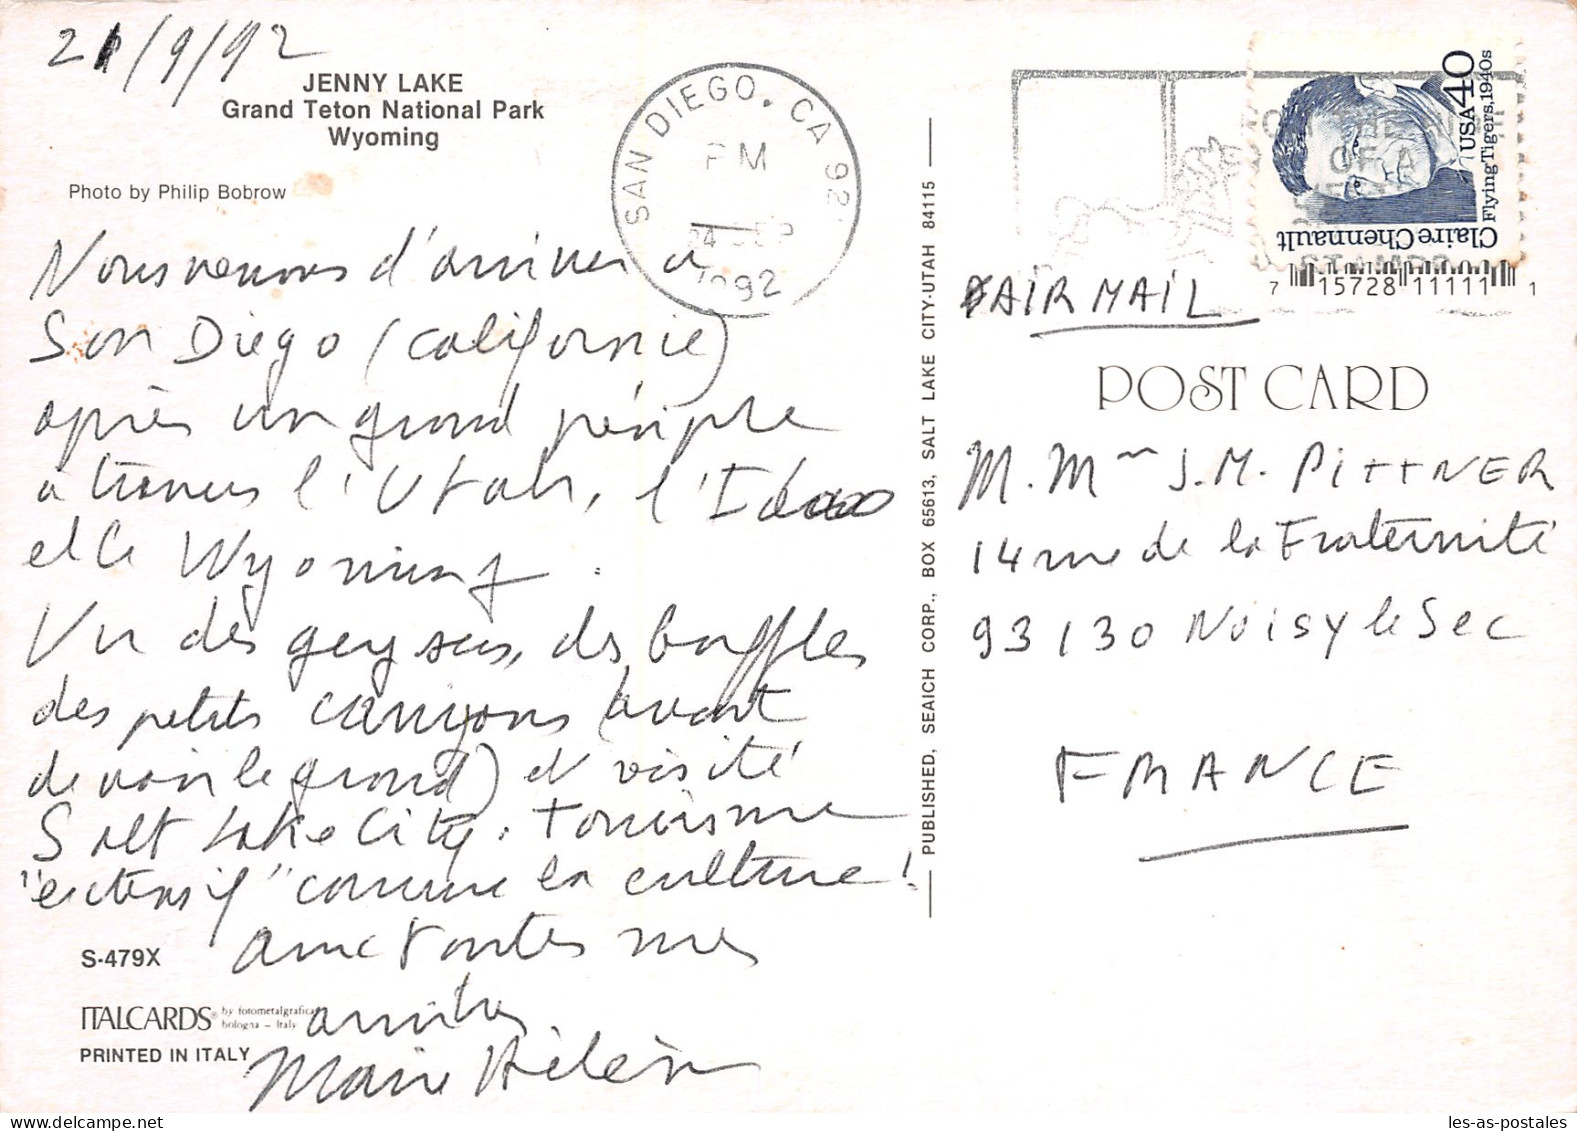 21/9/92
JENNY LAKE
Grand Teton National Park
Wyoming
Photo by Philip Bobrow
Nous venons d'arriver à
San Diego (Californie)
après un grand périple
à travers l'Utah, l'Idaho
et le Wyoming.
Vu des geysers, des buffles
des petits canyons (avant
de voir le grand) et visité
Salt Lake City. Tourisme
"extensif" comme la culture!
avec toutes mes
amitiés
Marie Hélène
S-479X
ITALCARDS® by fotometalgrafica
bologna - Italy
PRINTED IN ITALY
SAN DIEGO, CA 92
PM
24 SEP
1992
PUBLISHED, SEAICH CORP., BOX 65613, SALT LAKE CITY-UTAH 84115
Claire Chennault
Flying Tigers, 1940s
USA 40
OF A
7 15728 11111 1
AIR MAIL
POST CARD
M. Mme J.M. PITTNER
14 rue de la Fraternité
93130 Noisy le Sec
FRANCE
les-as-postales